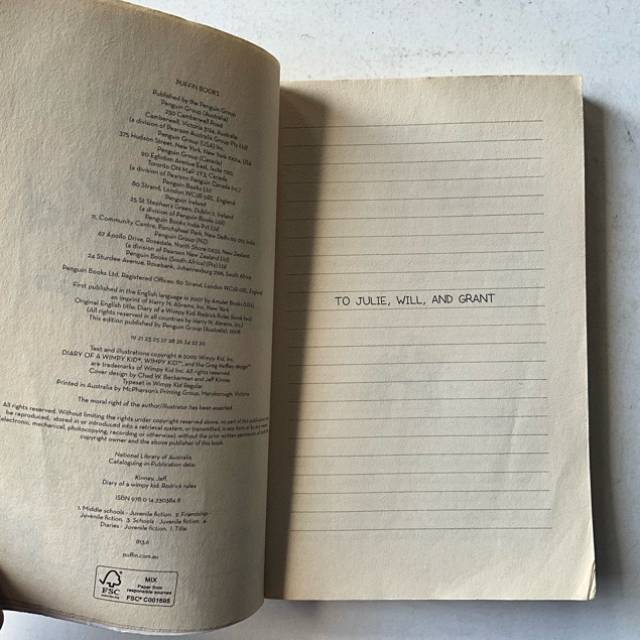 PUFFIN BOOKS
Published by the Penguin Group
Penguin Group (Australia)
250 Camberwell Road
Camberwell, Victoria 3124, Australia
(a division of Pearson Australia Group Pty Ltd)
Penguin Group (USA) Inc.
375 Hudson Street, New York, New York 10014, USA
Penguin Group (Canada)
90 Eglinton Avenue East, Suite 700,
Toronto ON M4P 2Y3, Canada
(a division of Pearson Penguin Canada Inc.)
Penguin Books Ltd
80 Strand, London WC2R 0RL, England
Penguin Ireland
25 St Stephen's Green, Dublin 2, Ireland
(a division of Penguin Books Ltd)
Penguin Books India Pvt Ltd
11, Community Centre, Panchsheel Park, New Delhi-110 017, India
Penguin Group (NZ)
67 Apollo Drive, Rosedale, North Shore 0632, New Zealand
(a division of Pearson New Zealand Ltd)
Penguin Books (South Africa) (Pty) Ltd
24 Sturdee Avenue, Rosebank, Johannesburg 2196, South Africa
Penguin Books Ltd, Registered Offices: 80 Strand, London WC2R 0RL, England
First published in the English language in 2007 by Amulet Books,
an imprint of Harry N. Abrams, Inc., New York
Original English title: Diary of a Wimpy Kid: Rodrick Rules
(All rights reserved in all countries by Harry N. Abrams, Inc.)
This edition published by Penguin Group (Australia), 2008
Text and illustrations copyright © Wimpy Kid, Inc.
DIARY OF A WIMPY KID®, WIMPY KID™, and the Greg Heffley design™
are trademarks of Wimpy Kid, Inc. All rights reserved.
Cover design by Chad W. Beckerman and Jeff Kinney
Typeset in Wimpy Kid Regular
Printed in Australia by McPherson's Printing Group, Maryborough, Victoria
The moral right of the author/illustrator has been asserted
All rights reserved. Without limiting the rights under copyright reserved above, no part of this publication may
be reproduced, stored in or introduced into a retrieval system, or transmitted, in any form or by any means
(electronic, mechanical, photocopying, recording or otherwise), without the prior written permission of both the
copyright owner and the above publisher of this book.
National Library of Australia
Cataloguing-in-Publication data:
Kinney, Jeff.
Diary of a wimpy kid: Rodrick rules
ISBN 978 0 14 330384 8
1. Middle schools - Juvenile fiction. 2. Friendship -
Juvenile fiction. 3. Schools - Juvenile fiction. 4.
Diaries - Juvenile fiction. I. Title.
813.6
puffin.com.au
FSC
MIX
Paper from
responsible sources
FSC® C001695
TO JULIE, WILL, AND GRANT